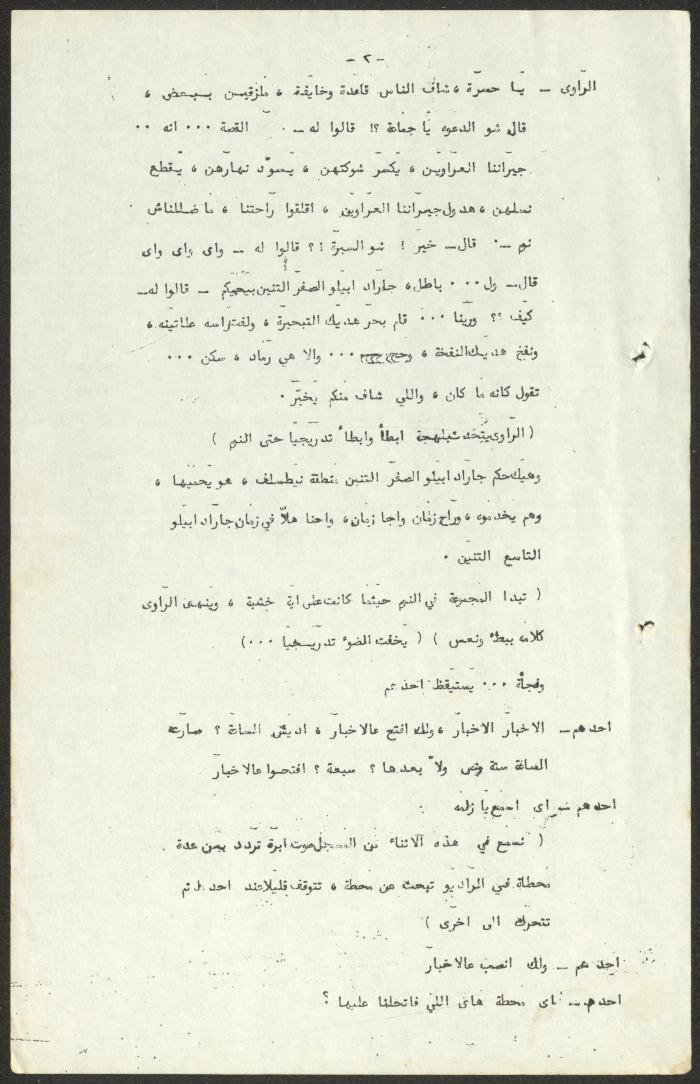 - ٢ -
الراوى - يا حسرة ، شاف الناس قاعدة وخايفة ، ملزقين ببعض ،
قال شو الدعوه يا جماعة ؟! قالوا له - القصة ... انه ..
جيراننا العراوين ، يكسر شوكتهن ، يسود نهارهن ، يقطع
نسلهن ، هدول جيراننا العراوين ، اقلقوا راحتنا ، ما ضللناش
نوم - . قال - خير ! شو السيرة ! ؟ قالوا له - واى واى واى
قال - ول ... باطل ، جاراد ابيلو الصفر التنين بيحميكم - قالوا له -
كيف ؟؟ ورينا ... قام بحر هديك التبحيرة ، ولفت راسه علاتينه ،
ونفخ هديك النفخة ، ... والا هي رماد ، سكن ...
تقول كانه ما كان ، واللي شاف منكم يخبر .
( الراوى يتحدث بلهجة ابطأ وابطأ تدريجيا حتى النوم )
وهيك حكم جاراد ابيلو الصفر التنين منطقة نيطسلف ، هو يحميها ،
وهم يخدموه ، وراح زمان واجا زمان ، واحنا هلأ في زمان جاراد ابيلو
التاسع التنين .
( تبدا المجموعة في النوم حيثما كانت على اية خشبة ، وينهى الراوى
كلامه ببطء ونعس ) ( يخفت الضوء تدريجيا ... )
وفجأة ... يستيقظ احدهم
احدهم - الاخبار الاخبار ، ولك افتح عالاخبار ، اديش الساعة ؟ صارت
الساعة ستة ونص ولا بعدها ؟ سبعة ؟ افتحوا عالاخبار
احدهم - اى اسمع يا زلمه
( نسمع في هذه الاثناء من المسجل صوت ابرة تردد بين عدة
محطات في الراديو تبحث عن محطة ، تتوقف قليلا عند احدها ثم
تتحرك الى اخرى )
احدهم - ولك انصب عالاخبار
احدهم - اى محطة هاى اللي فاتحلنا عليها ؟